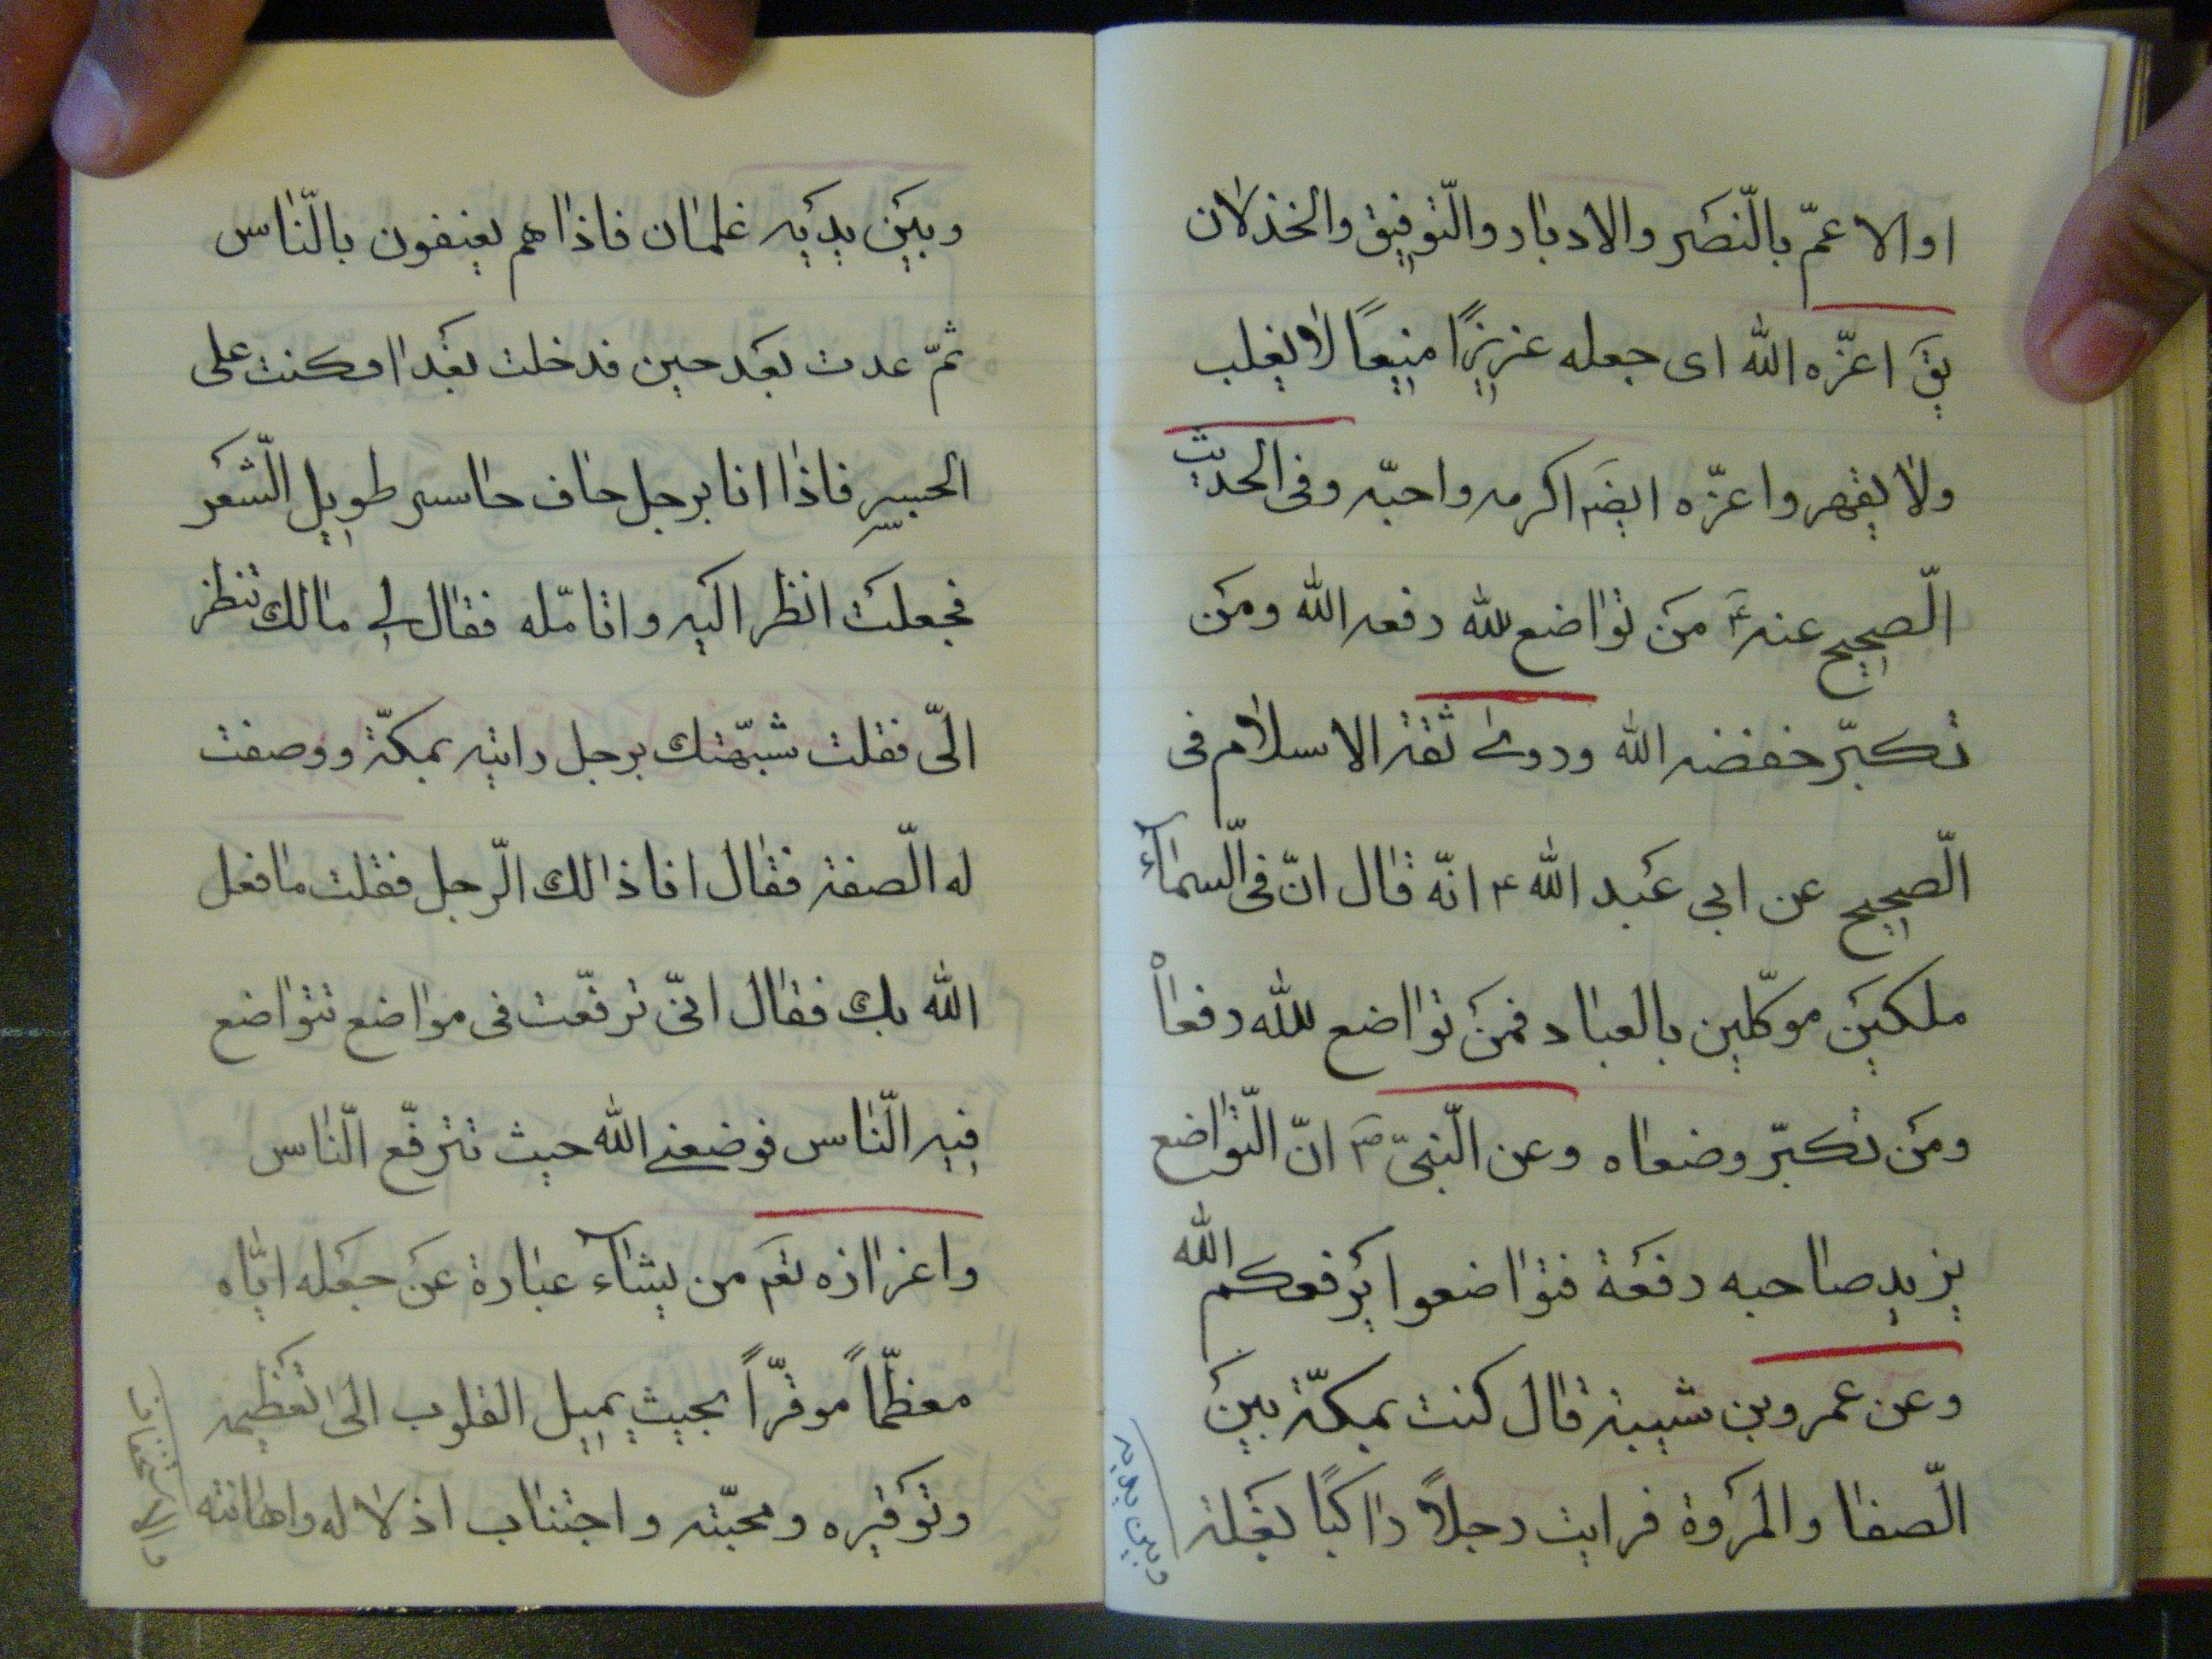 او الاعمّ بالنّصر والادبار والتّوفيق والخذلان
يقَ اعزّه الله اى جعله عزيزًا منيعًا لا يغلب
ولا يقهر واعزّه ايضَم اكرمه واحبّه وفى الحديث
الصّحيح عنه ع من تواضع لله رفعه الله ومن
تكبّر خفضه الله وروى ثقة الاسلام فى
الصّحيح عن ابى عبد الله ع انّه قال انّ فى السّمآء
ملكين موكّلين بالعباد فمن تواضع لله رفعاه
ومن تكبّر وضعاه وعن النّبىّ ص انّ التّواضع
يزيد صاحبه رفعة فتواضعوا يرفعكم الله
وعن عمرو بن شيبة قال كنت بمكّة بين
الصّفا والمروة فرايت رجلًا راكبًا بغلة
وبين يديه
وبين يديه غلمان فاذا هم يعنفون بالنّاس
ثمّ عدت بعد حين فدخلت بغداد وكنت على
الجسر فاذا انا برجل حاف حاسر طويل الشّعر
فجعلت انظر اليه واتامّله فقال لى مالك تنظر
الىّ فقلت شبّهتك برجل رايته بمكّة ووصفت
له الصّفة فقال انا ذالك الرّجل فقلت ما فعل
الله بك فقال انّى ترفّعت فى مواضع تتواضع
فيه النّاس فوضعنى الله حيث تترفّع النّاس
واعزازه تعَم من يشآء عبارة عن جعله ايّاه
معظّمًا موقّرًا بحيث يميل القلوب الى تعظيمه
وتوقيره ومحبّته واجتناب اذلاله واهانته
والاستخفاف